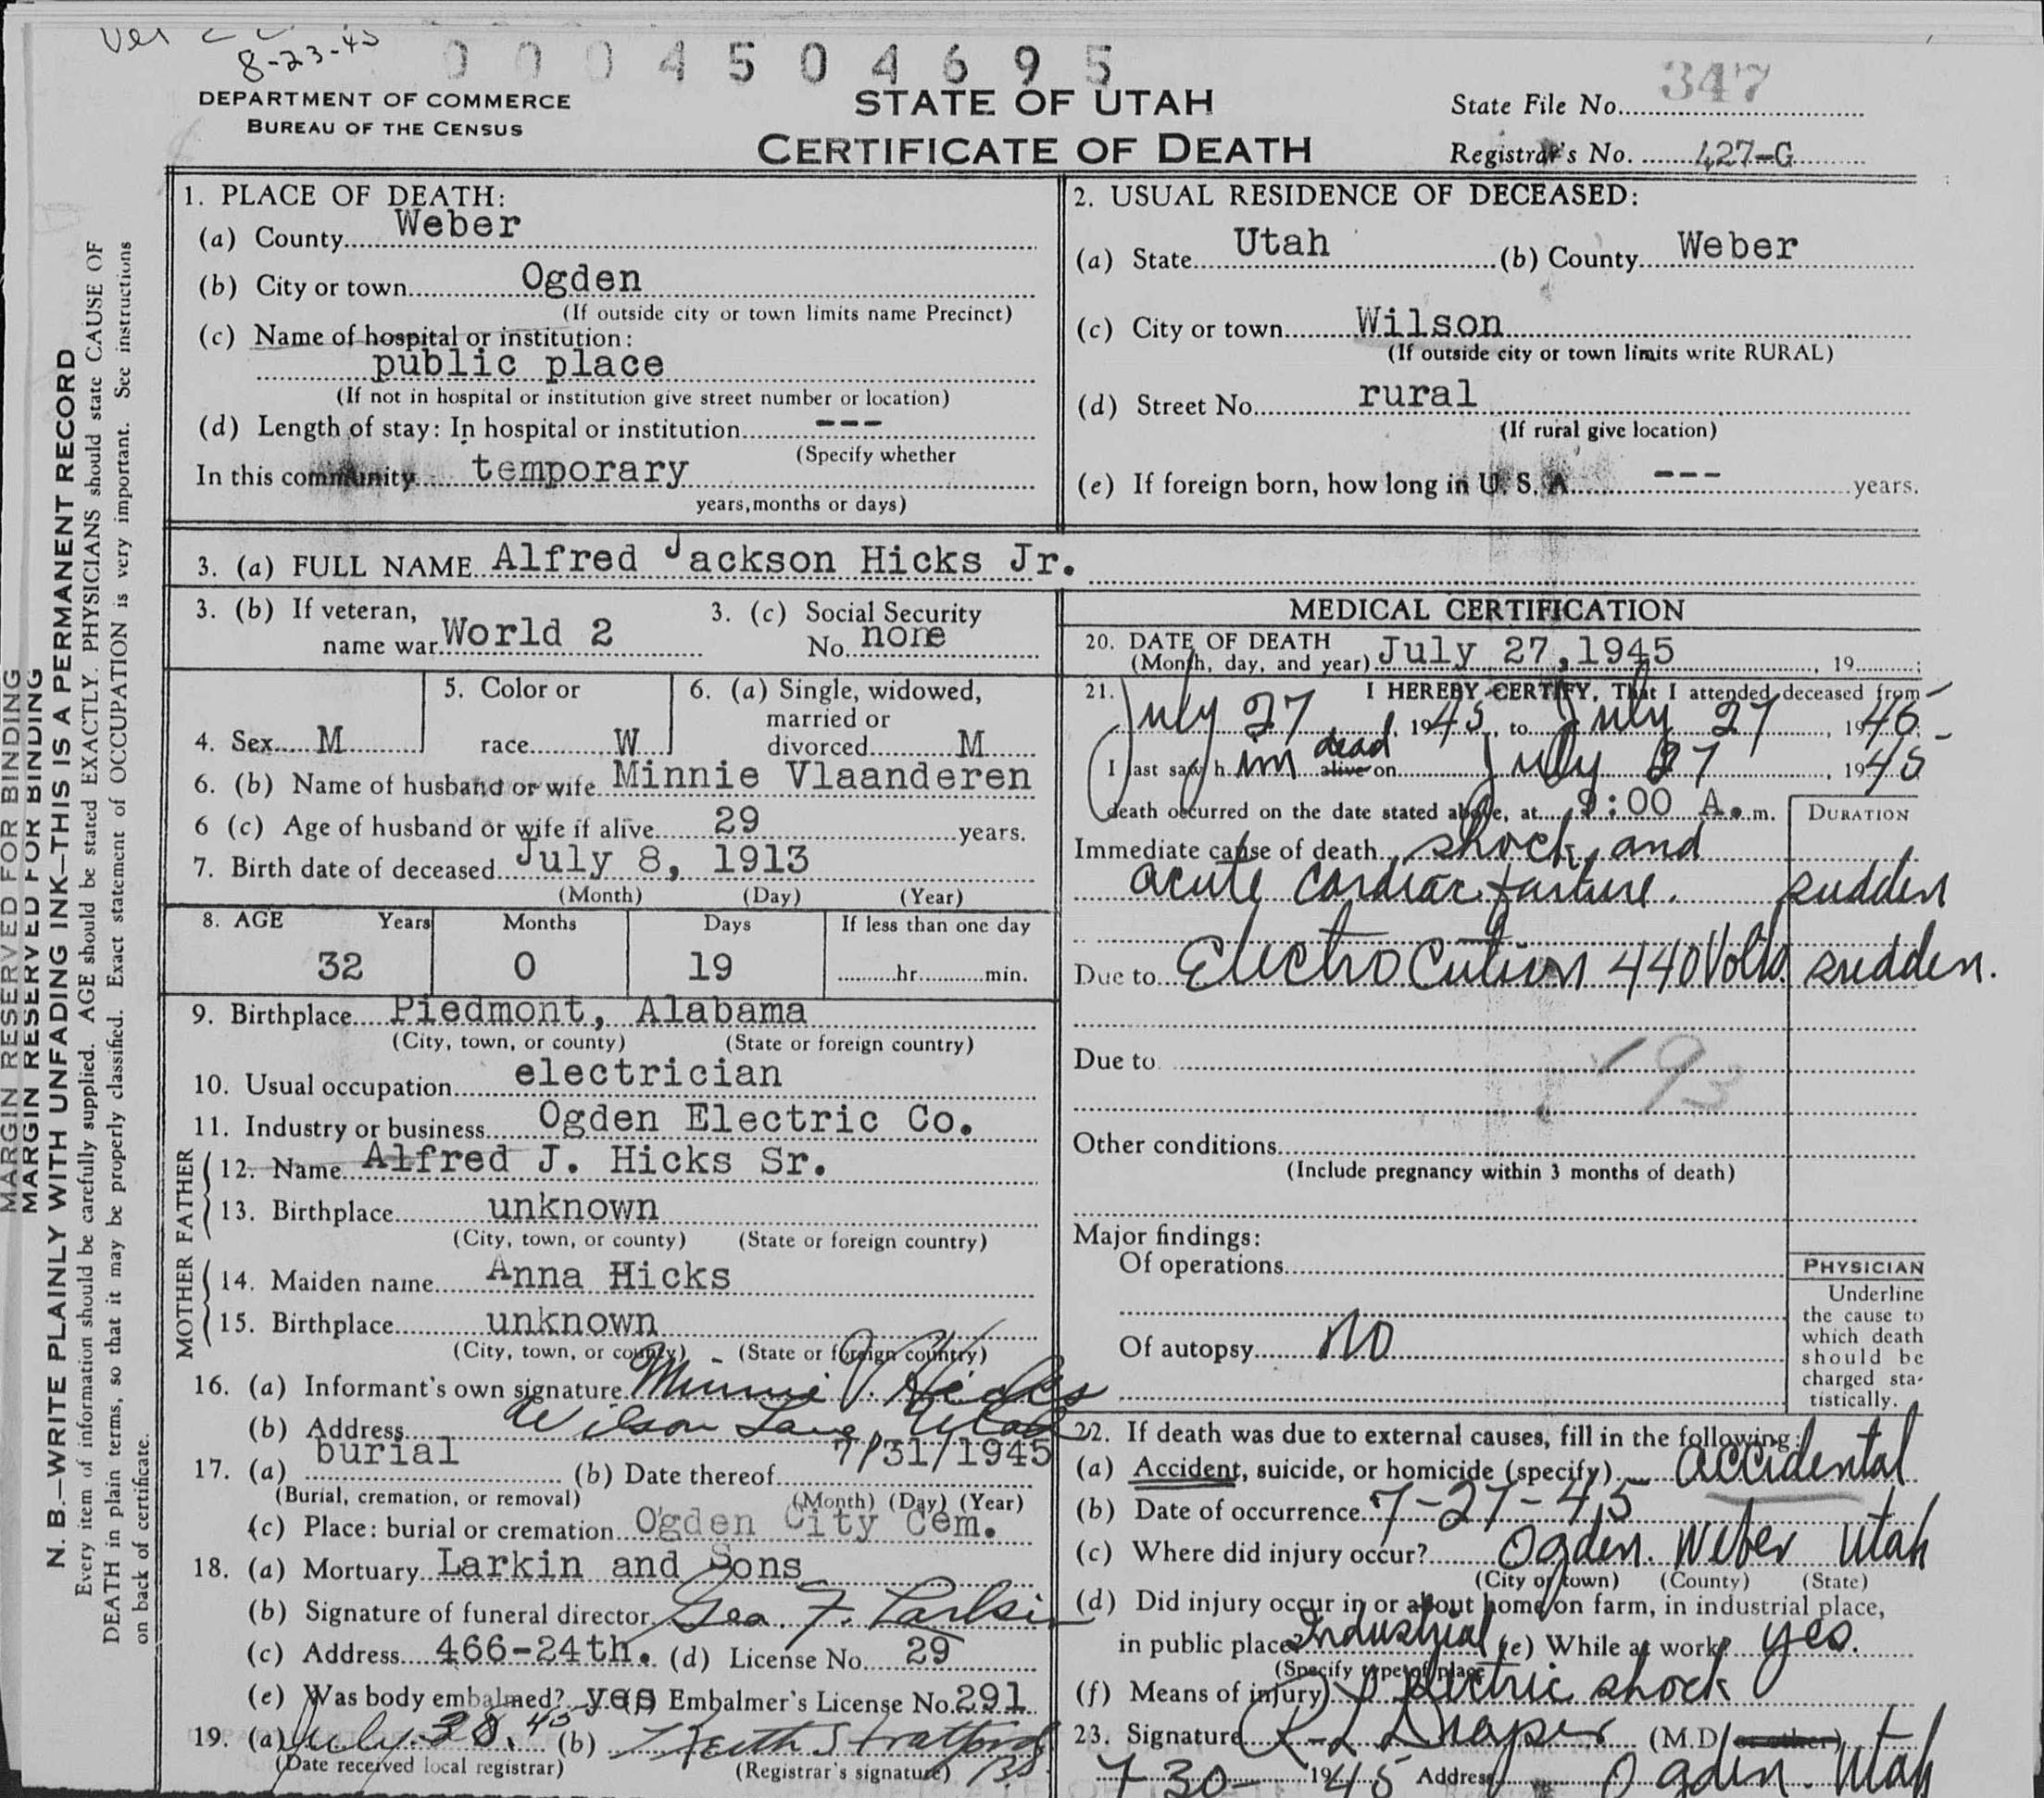 8-23-45
0004504695
DEPARTMENT OF COMMERCE
BUREAU OF THE CENSUS
STATE OF UTAH
CERTIFICATE OF DEATH
State File No. 347
Registrar's No. 427-G
MARGIN RESERVED FOR BINDING
MARGIN RESERVED FOR BINDING
N. B.—WRITE PLAINLY WITH UNFADING INK—THIS IS A PERMANENT RECORD
Every item of information should be carefully supplied. AGE should be stated EXACTLY. PHYSICIANS should state CAUSE OF
DEATH in plain terms, so that it may be properly classified. Exact statement of OCCUPATION is very important. See instructions
on back of certificate.
1. PLACE OF DEATH:
(a) County Weber
(b) City or town Ogden
(If outside city or town limits name Precinct)
(c) Name of hospital or institution:
public place
(If not in hospital or institution give street number or location)
(d) Length of stay: In hospital or institution ---
(Specify whether
In this community temporary
years, months or days)
2. USUAL RESIDENCE OF DECEASED:
(a) State Utah (b) County Weber
(c) City or town Wilson
(If outside city or town limits write RURAL)
(d) Street No. rural
(If rural give location)
(e) If foreign born, how long in U. S. A. --- years.
3. (a) FULL NAME Alfred Jackson Hicks Jr.
3. (b) If veteran, name war World 2
3. (c) Social Security No. none
4. Sex M
5. Color or race W
6. (a) Single, widowed, married or divorced M
6. (b) Name of husband or wife Minnie Vlaanderen
6 (c) Age of husband or wife if alive 29 years.
7. Birth date of deceased July 8, 1913
(Month) (Day) (Year)
8. AGE Years Months Days If less than one day
32 0 19 hr. min.
9. Birthplace Piedmont, Alabama
(City, town, or county) (State or foreign country)
10. Usual occupation electrician
11. Industry or business Ogden Electric Co.
FATHER
12. Name Alfred J. Hicks Sr.
13. Birthplace unknown
(City, town, or county) (State or foreign country)
MOTHER
14. Maiden name Anna Hicks
15. Birthplace unknown
(City, town, or county) (State or foreign country)
16. (a) Informant's own signature Minnie V. Hicks
(b) Address Wilson Lane, Utah
17. (a) burial (b) Date thereof 7/31/1945
(Burial, cremation, or removal) (Month) (Day) (Year)
(c) Place: burial or cremation Ogden City Cem.
18. (a) Mortuary Larkin and Sons
(b) Signature of funeral director Geo. F. Larkin
(c) Address 466-24th. (d) License No. 29
(e) Was body embalmed? yes Embalmer's License No. 291
19. (a) July 28, 45 (b) Keith Stratford
(Date received local registrar) (Registrar's signature)
MEDICAL CERTIFICATION
20. DATE OF DEATH
(Month, day, and year) July 27, 1945, 19 ;
21. I HEREBY CERTIFY, That I attended deceased from
July 27, 1945, to July 27, 1945
I last saw him alive dead on July 27, 1945
death occurred on the date stated above, at 9:00 A. m.
DURATION
Immediate cause of death shock and
acute cardiac failure. sudden
Due to Electrocution 440 Volts. sudden.
Due to
193
Other conditions
(Include pregnancy within 3 months of death)
Major findings:
Of operations
Of autopsy No
PHYSICIAN
Underline
the cause to
which death
should be
charged sta-
tistically.
22. If death was due to external causes, fill in the following:
(a) Accident, suicide, or homicide (specify) Accidental
(b) Date of occurrence 7-27-45
(c) Where did injury occur? Ogden. Weber Utah
(City or town) (County) (State)
(d) Did injury occur in or about home, on farm, in industrial place,
in public place? Industrial (e) While at work? yes.
(Specify type of place)
(f) Means of injury Electric shock
23. Signature R L Draper (M.D. or other)
7 30- 1945 Address Ogden. Utah